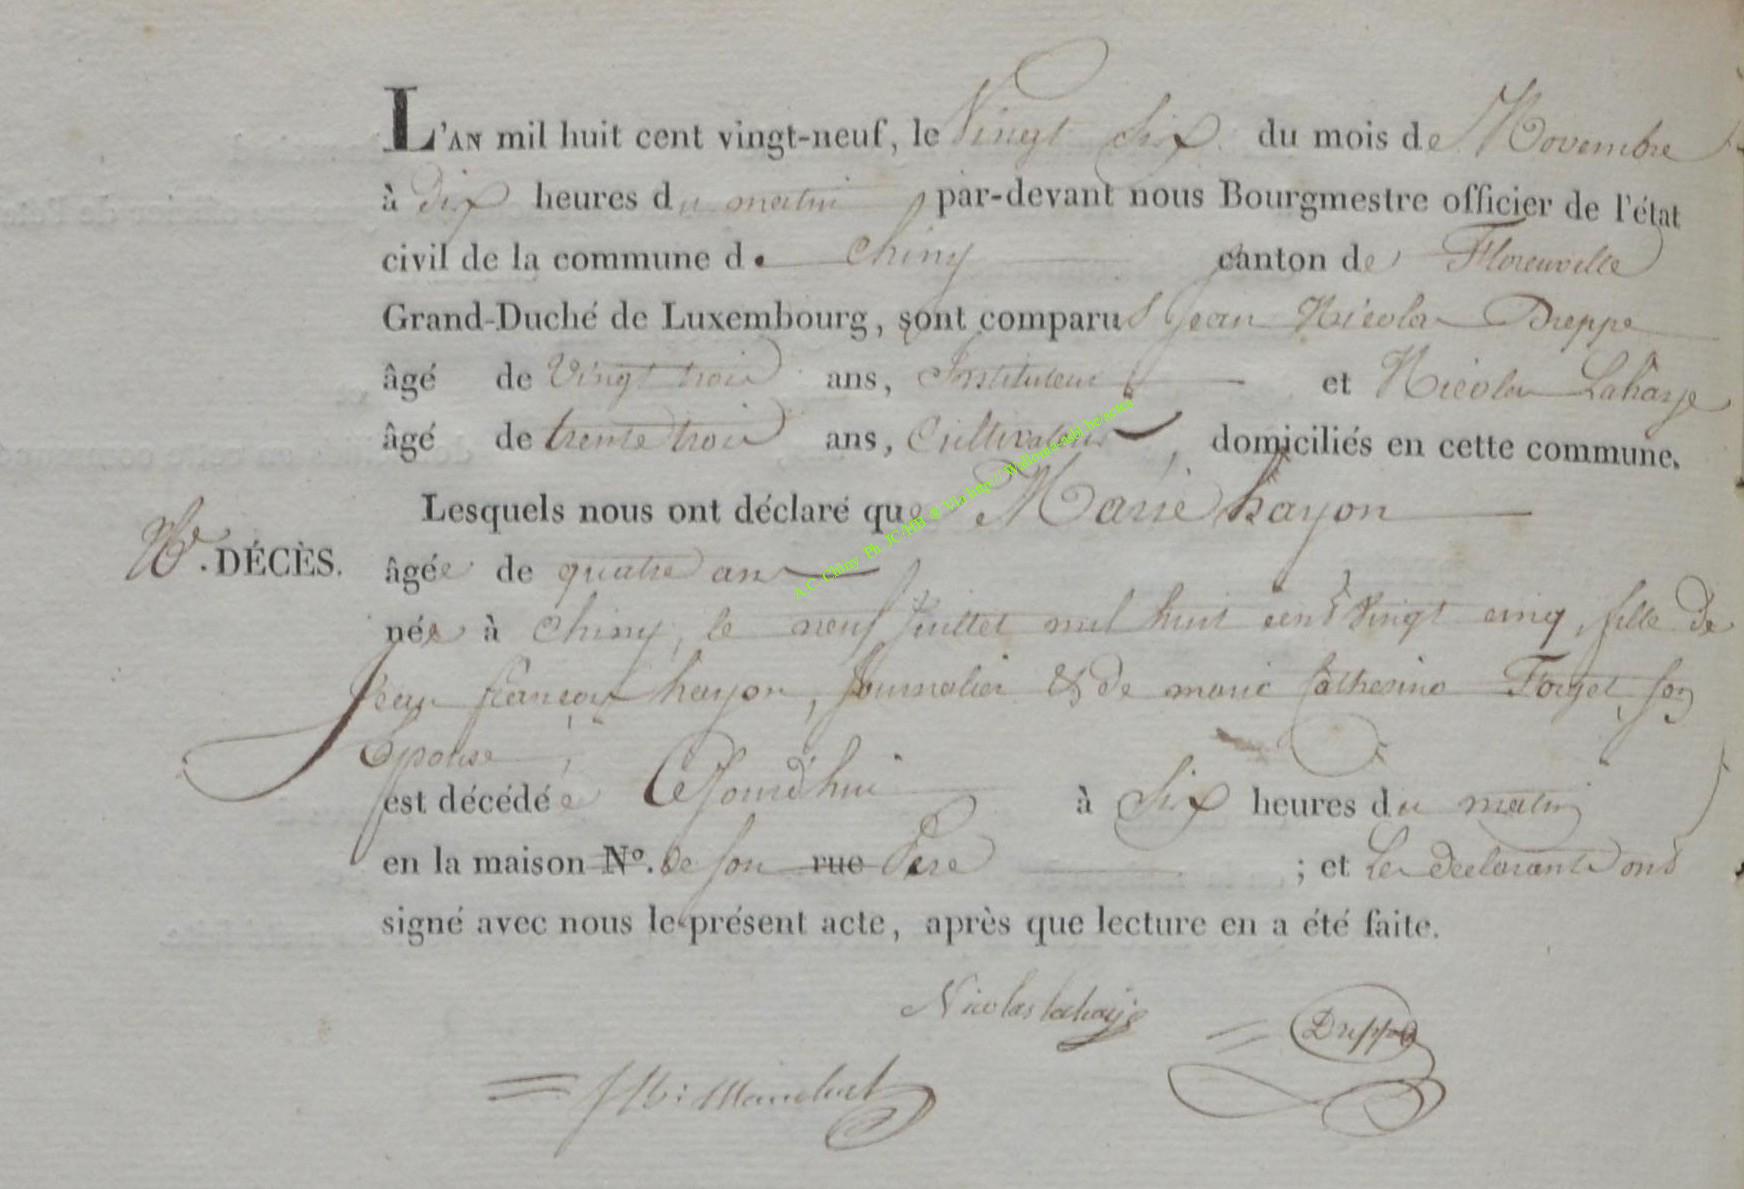 L'AN mil huit cent vingt-neuf, le Vingt Six du mois de Novembre
à dix heures du matin par-devant nous Bourgmestre officier de l'état
civil de la commune de Chiny canton de Florenville
Grand-Duché de Luxembourg, sont comparus Jean Nicolas Dreppe
âgé de Vingt trois ans, Instituteur et Nicolas Lahaye
âgé de trente trois ans, Cultivateur, domiciliés en cette commune.
Lesquels nous ont déclaré que Marie hayon
DÉCÈS.
âgée de quatre ans
née à Chiny, le neuf Juillet mil huit cent Vingt cinq, fille de
Jean françois hayon, Journalier & de marie Catherine Forget, son
Epouse,
est décédée Cejourd'hui à Six heures du matin
en la maison N°. de son rue Père ; et Les déclarants ont
signé avec nous le présent acte, après que lecture en a été faite.
Nicolas lahaye
Dreppe